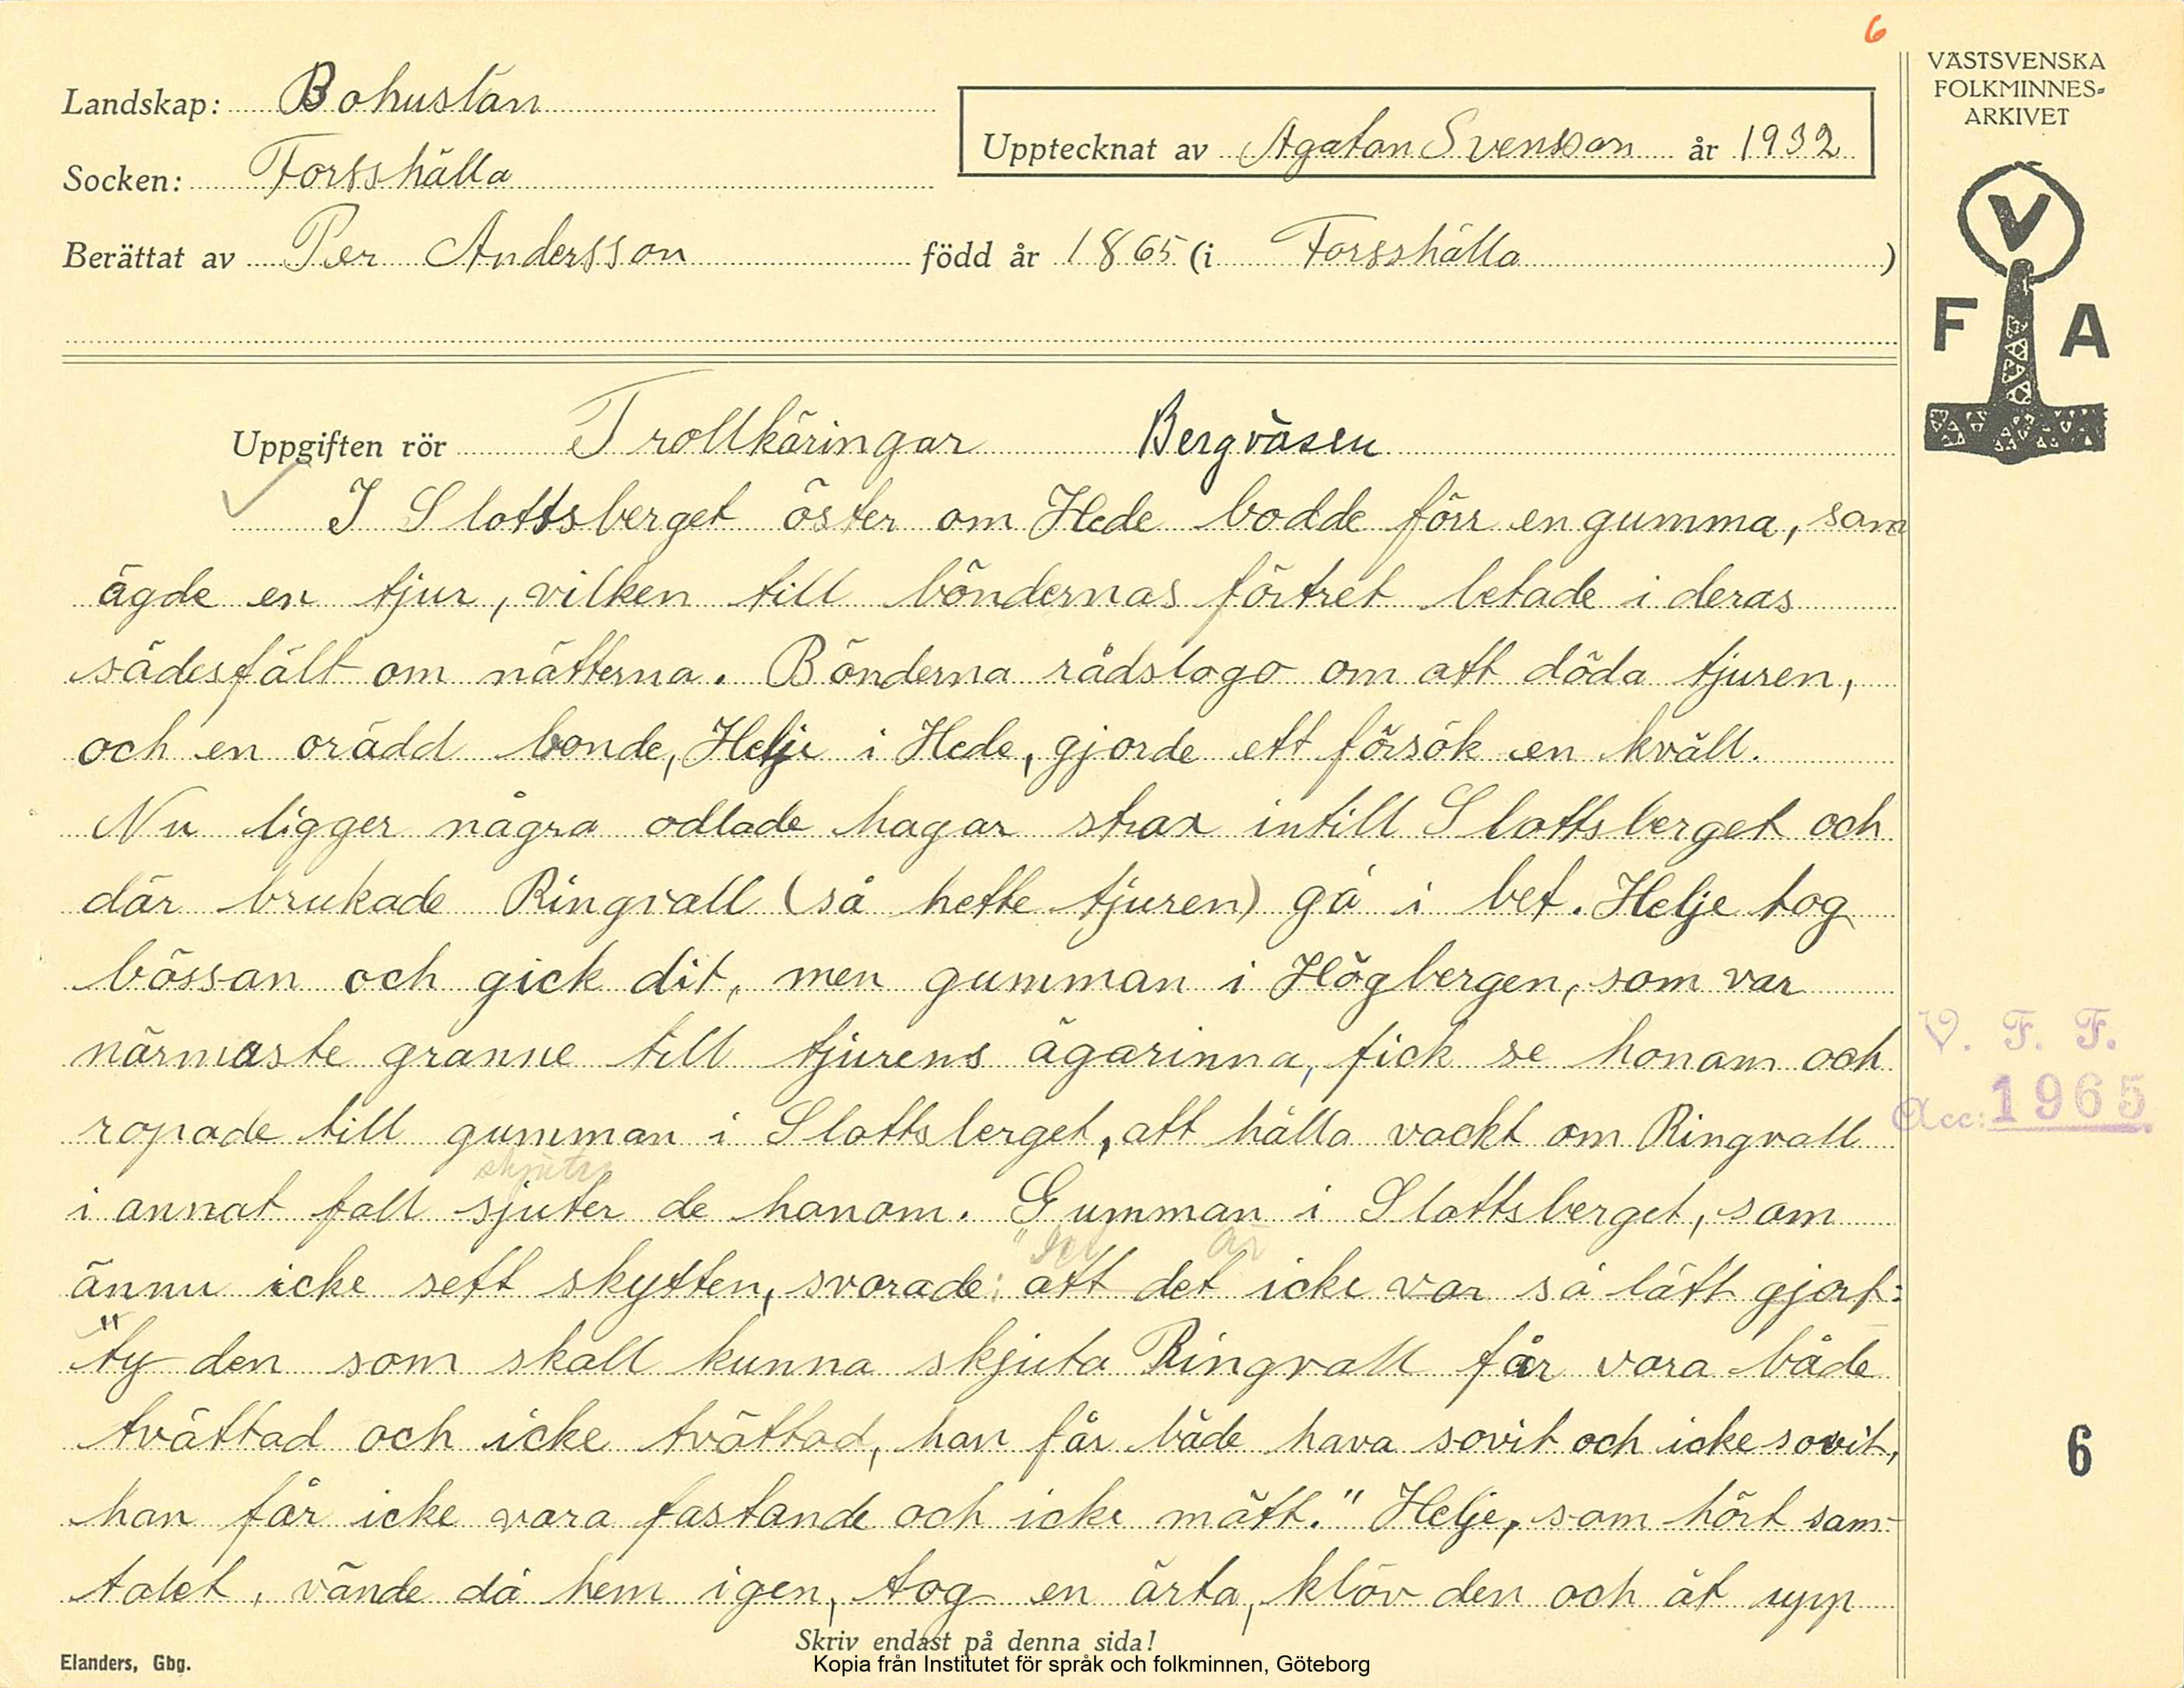 6
VÄSTSVENSKA
FOLKMINNES-
ARKIVET
Landskap: Bohuslän
Upptecknat av Agaton Svensson år 1932
Socken: Forsshälla
Berättat av Per Andersson född år 1865 (i Forsshälla)
V
F A
Uppgiften rör Trollkäringar Bergväsen
I Slottsberget öster om Hede bodde förr en gumma, som
ägde en tjur, vilken till böndernas förtret betade i deras
sädesfält om nätterna. Bönderna rådslogo om att döda tjuren,
och en orädd bonde, Helje i Hede, gjorde ett försök en kväll.
Nu ligger några odlade hagar strax intill Slottsberget och
där brukade Ringvall (så hette tjuren) gå i bet. Helje tog
bössan och gick dit, men gumman i Högbergen, som var
närmaste granne till tjurens ägarinna, fick se honom och
ropade till gumman i Slottsberget, att hålla vackt om Ringvall
skjuter
i annat fall sjuter de honom. Gumman i Slottsberget, som
"Det är
ännu icke sett skytten, svarade: att det icke var så lätt gjort:
"ty den som skall kunna skjuta Ringvall får vara både
tvättad och icke tvättad, han får både hava sovit och icke sovit,
han får icke vara fastande och icke mätt." Helje, som hört sam-
talet, vände då hem igen, tog en ärta, klöv den och åt upp
V. F. F.
Acc: 1965
6
Skriv endast på denna sida!
Elanders, Gbg.
Kopia från Institutet för språk och folkminnen, Göteborg